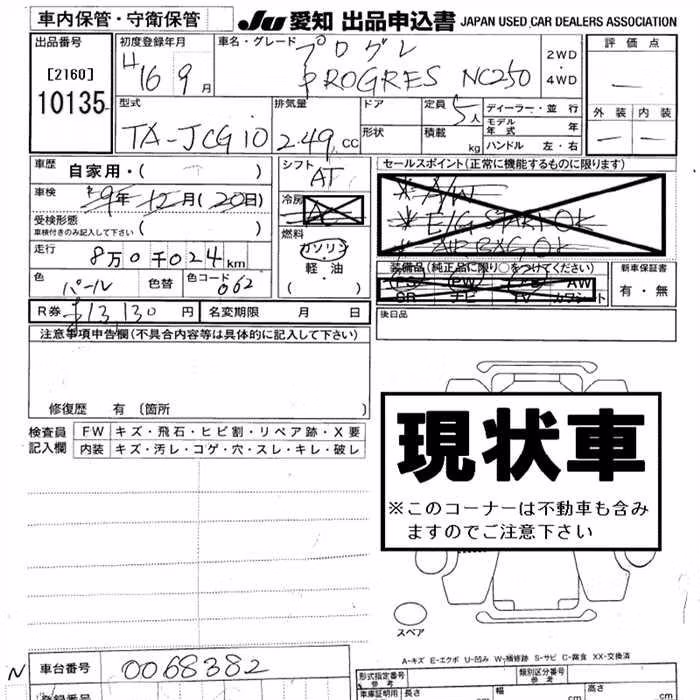 車内保管・守衛保管
JU 愛知 出品申込書 JAPAN USED CAR DEALERS ASSOCIATION
出品番号
[2160]
10135
初度登録年月
H16 9月
車名・グレード
プログレ
PROGRES NC250
2WD
・
4WD
評価点
—
外装 内装
— —
型式
TA-JCG10
排気量
2.49 cc
ドア
形状
定員 5人
積載 kg
ディーラー・並行
モデル年式 年
ハンドル 左・右
車歴 自家用・( )
車検 29年12月(20日)
受検形態
車検付きのみ記入して下さい ( )
走行 8万0千024km
色 パール 色替 色コード 062
シフト
AT
冷房
AC
燃料
ガソリン
・
軽油
( )
セールスポイント(正常に機能するものに限ります)
* A/W
* E/G START OK
* AIRBAG OK
装備品(純正品に限り○をつけてください)
PS PW AW
SR ナビ TV カワシート
新車保証書
有・無
R券 ¥13,130円 名変期限 月 日
後日品
注意事項申告欄(不具合内容等は具体的に記入して下さい)
修復歴 有 〔箇所 〕
検査員
記入欄
FW キズ・飛石・ヒビ割・リペア跡・X要
内装 キズ・汚レ・コゲ・穴・スレ・キレ・破レ
現状車
※このコーナーは不動車も含み
ますのでご注意下さい
スペア
A-キズ E-エクボ U-凹み W-補修跡 S-サビ C-腐食 XX-交換済
N 車台番号 0068382
登録番号
型式指定番号
参考
類別区分番号
参考
車庫証明用
参考
長さ 幅 高さ